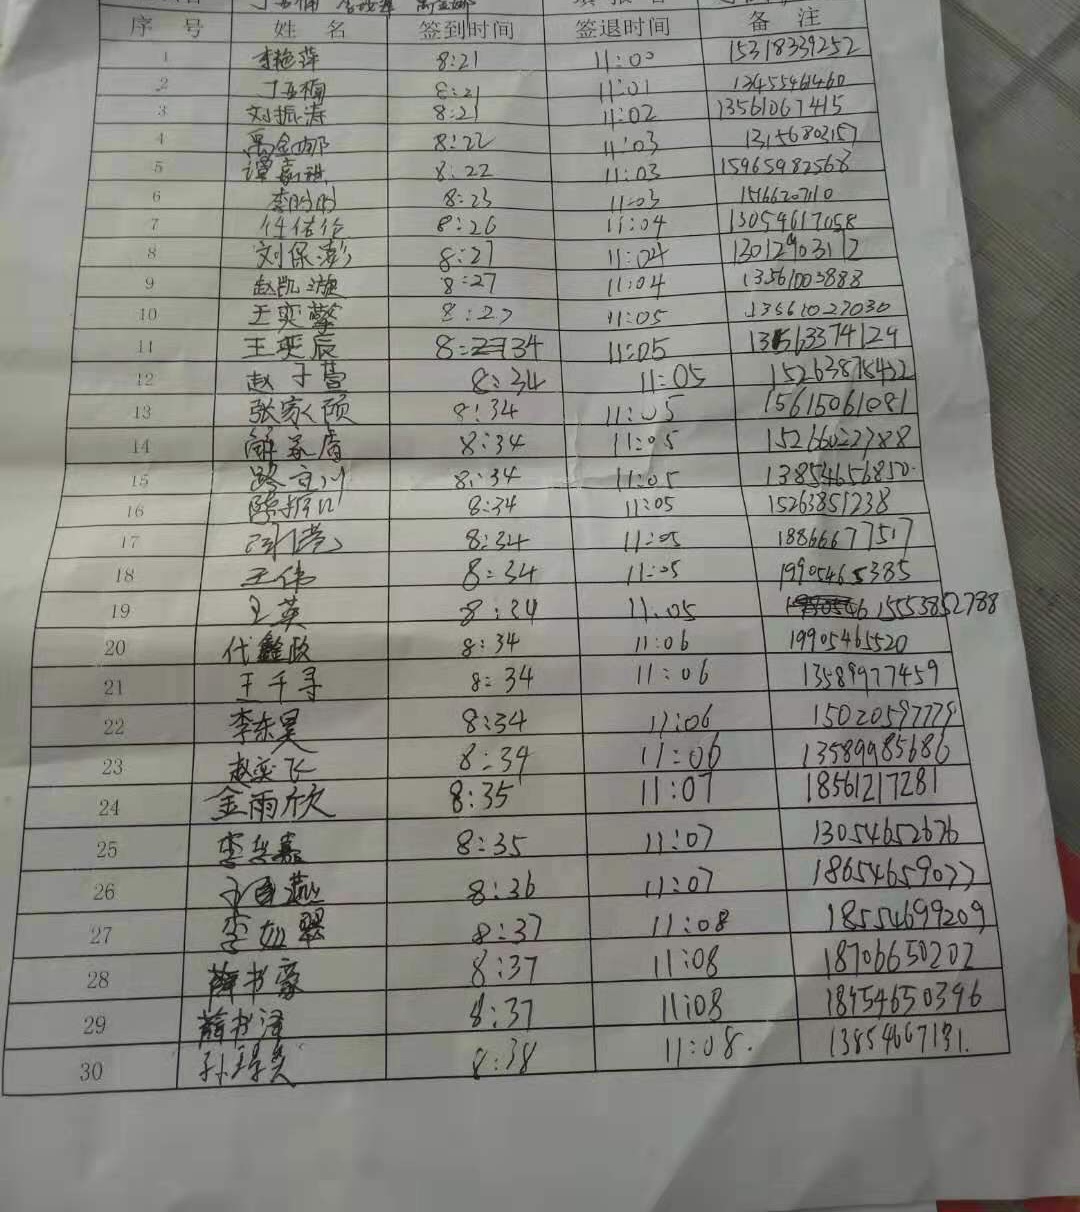 序 号 姓 名 签到时间 签退时间 备 注
1 李艳萍 8:21 11:00 15318339252
2 丁亚楠 8:21 11:01 13455461460
3 刘振涛 8:21 11:02 13561067415
4 8:22 11:03
5 8:22 11:03 15965982568
6 8:23 11:03
7 8:26 11:04 13054617058
8 刘保澎 8:27 11:04 13012903112
9 赵凯漩 8:27 11:04 13561003888
10 王奕擎 8:27 11:05 13561027030
11 王奕辰 8:34 11:05 13563374124
12 赵子萱 8:34 11:05
13 张家硕 8:34 11:05 15615061081
14 8:34 11:05 15266022788
15 路立川 8:34 11:05 13854656850.
16 陈振川 8:34 11:05 15263851238
17 8:34 11:05 18866677517
18 王伟 8:34 11:05 19905465385
19 王英 8:34 11:05 15553852788
20 代鑫政 8:34 11:06 19905465520
21 王千寻 8:34 11:06 13589977459
22 李东昊 8:34 11:06 15020597779
23 赵奕飞 8:34 11:06 13589985686
24 金雨欣 8:35 11:07 18561217281
25 8:35 11:07 13054652676
26 8:36 11:07 18654659077
27 8:37 11:08 18554699209
28 8:37 11:08 18706650202
29 8:37 11:08 18954650396
30 8:38 11:08. 13854667131.